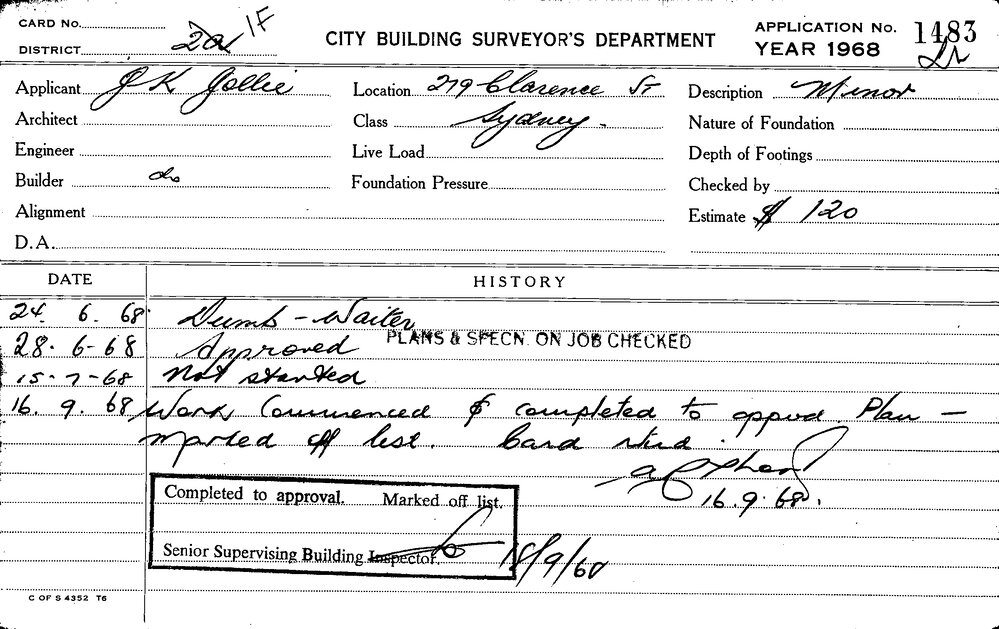 CARD No.
DISTRICT 2a 1F
CITY BUILDING SURVEYOR'S DEPARTMENT
APPLICATION No. 1483
YEAR 1968
Applicant J K Jollie Location 279 Clarence St Description Minor
Architect Class Sydney - Nature of Foundation
Engineer Live Load Depth of Footings
Builder do Foundation Pressure Checked by
Alignment Estimate $ 120
D.A.
DATE HISTORY
24. 6. 68 Dumb - Waiter
28. 6-68 Approved PLANS & SPECN. ON JOB CHECKED
15-7-68 Not started
16. 9. 68 Work Commenced & completed to appvd Plan -
marked off list. Card
16.9.68.
Completed to approval. Marked off list.
Senior Supervising Building Inspector. 18/9/68
C OF S 4352 T6